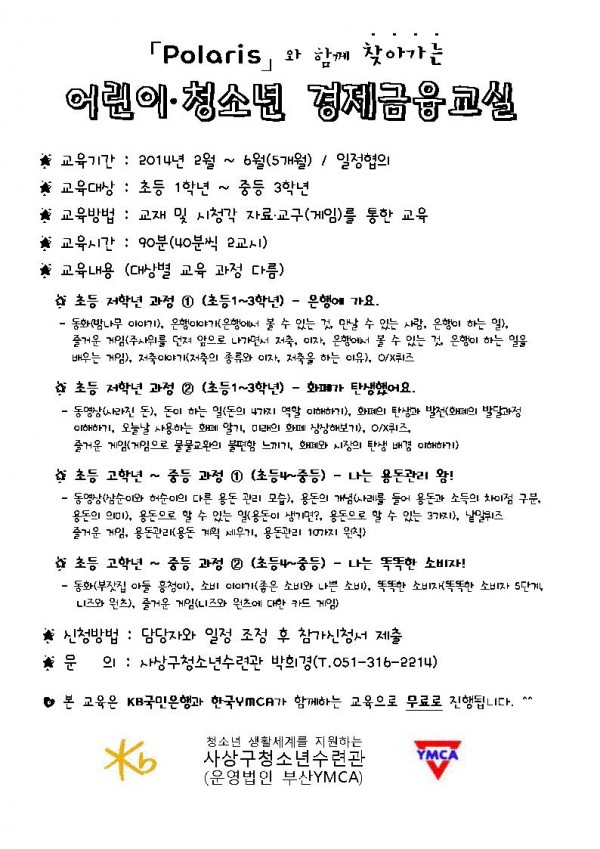 「Polaris」와 함께 찾아가는
어린이·청소년 경제금융교실
교육기간 : 2014년 2월 ~ 6월(5개월) / 일정협의
교육대상 : 초등 1학년 ~ 중등 3학년
교육방법 : 교재 및 시청각 자료·교구(게임)를 통한 교육
교육시간 : 90분(40분씩 2교시)
교육내용 (대상별 교육 과정 다름)
초등 저학년 과정 ① (초등1~3학년) - 은행에 가요.
- 동화(밤나무 이야기), 은행이야기(은행에서 볼 수 있는 것, 만날 수 있는 사람, 은행이 하는 일),
즐거운 게임(주사위를 던져 앞으로 나가면서 저축, 이자, 은행에서 볼 수 있는 것, 은행이 하는 일을
배우는 게임), 저축이야기(저축의 종류와 이자, 저축을 하는 이유), O/X퀴즈
초등 저학년 과정 ② (초등1~3학년) - 화폐가 탄생했어요.
- 동영상(사라진 돈), 돈이 하는 일(돈의 4가지 역할 이해하기), 화폐의 탄생과 발전(화폐의 발달과정
이해하기, 오늘날 사용하는 화폐 알기, 미래의 화폐 상상해보기), O/X퀴즈,
즐거운 게임(게임으로 물물교환의 불편함 느끼기, 화폐와 시장의 탄생 배경 이해하기)
초등 고학년 ~ 중등 과정 ① (초등4~중등) - 나는 용돈관리 왕!
- 동영상(삼순이와 허순이의 다른 용돈 관리 모습), 용돈의 개념(사례를 들어 용돈과 소득의 차이점 구분,
용돈의 의미), 용돈으로 할 수 있는 일(용돈이 생기면?, 용돈으로 할 수 있는 3가지), 낱말퀴즈
즐거운 게임, 용돈관리(용돈 계획 세우기, 용돈관리 10가지 원칙)
초등 고학년 ~ 중등 과정 ② (초등4~중등) - 나는 똑똑한 소비자!
- 동화(부잣집 아들 흥청이), 소비 이야기(좋은 소비와 나쁜 소비), 똑똑한 소비자(똑똑한 소비자 5단계,
니즈와 원츠), 즐거운 게임(니즈와 원츠에 대한 카드 게임)
신청방법 : 담당자와 일정 조정 후 참가신청서 제출
문 의 : 사상구청소년수련관 박희경(T.051-316-2214)
본 교육은 KB국민은행과 한국YMCA가 함께하는 교육으로 무료로 진행됩니다. ^^
Kb
청소년 생활세계를 지원하는
사상구청소년수련관
(운영법인 부산YMCA)
YMCA